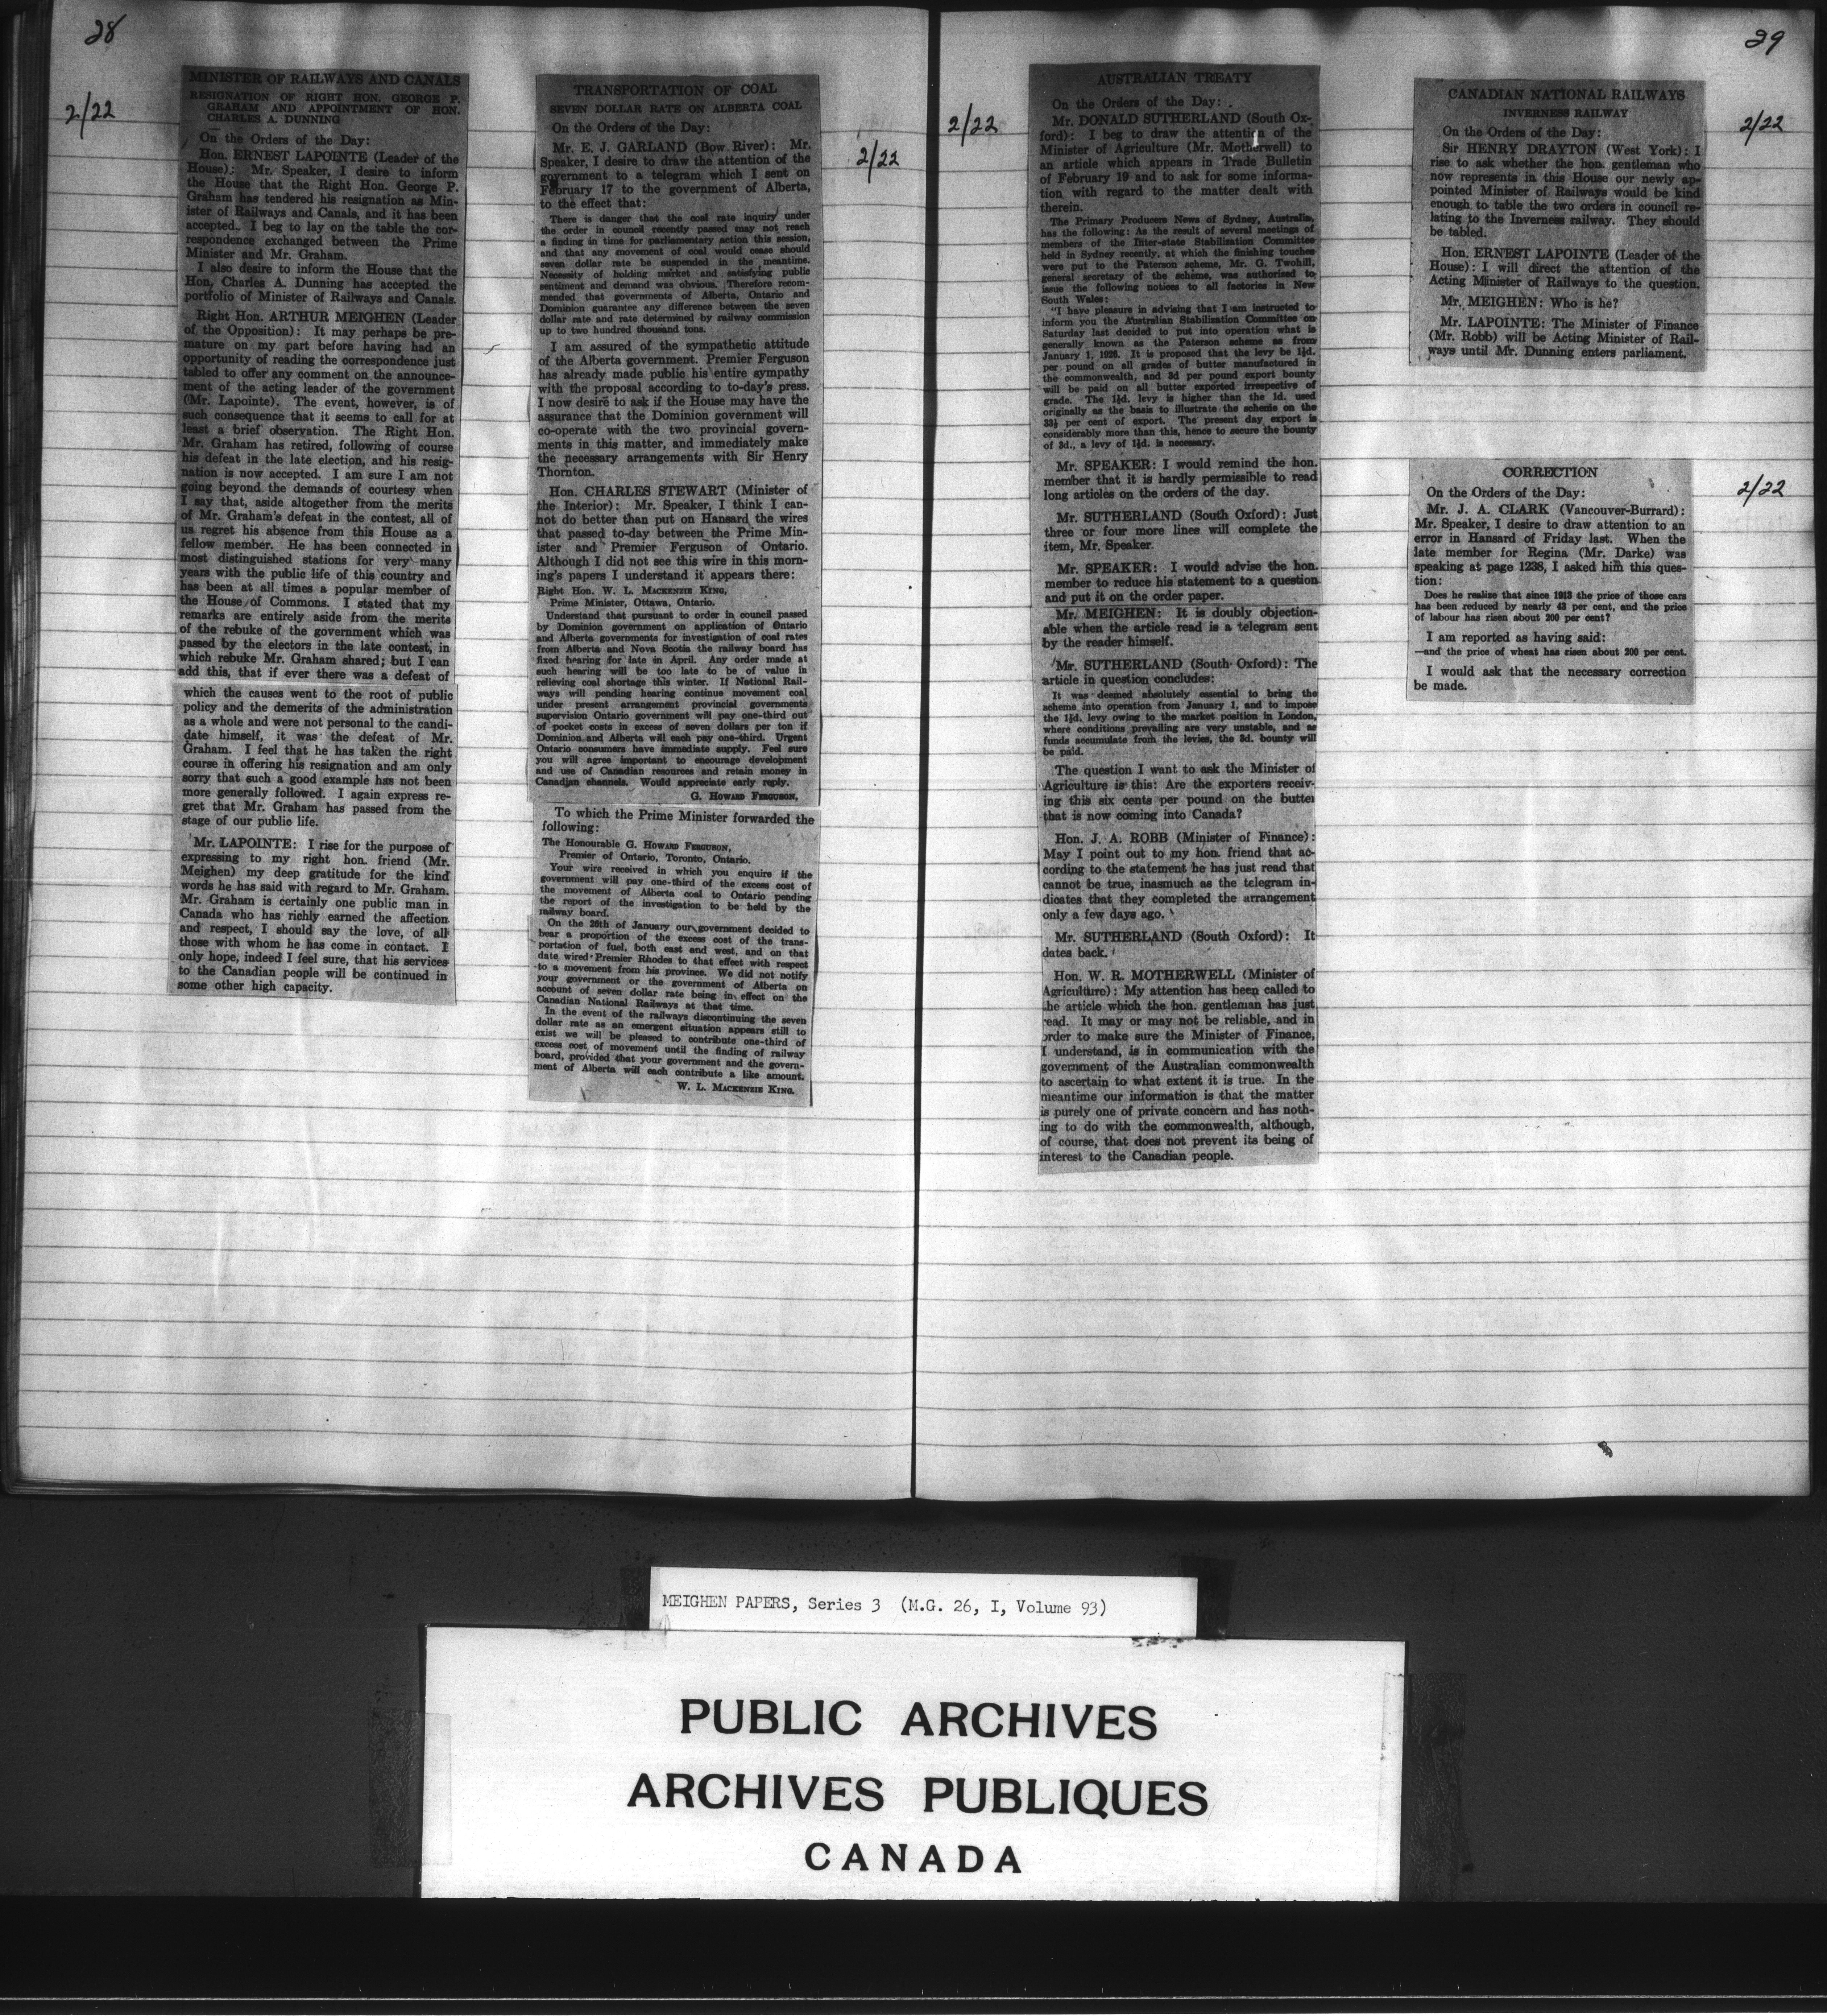 28
2/22
MINISTER OF RAILWAYS AND CANALS
RESIGNATION OF RIGHT HON. GEORGE P.
GRAHAM AND APPOINTMENT OF HON.
CHARLES A. DUNNING
On the Orders of the Day:
Hon. ERNEST LAPOINTE (Leader of the
House): Mr. Speaker, I desire to inform
the House that the Right Hon. George P.
Graham has tendered his resignation as Min-
ister of Railways and Canals, and it has been
accepted. I beg to lay on the table the cor-
respondence exchanged between the Prime
Minister and Mr. Graham.
I also desire to inform the House that the
Hon. Charles A. Dunning has accepted the
portfolio of Minister of Railways and Canals.
Right Hon. ARTHUR MEIGHEN (Leader
of the Opposition): It may perhaps be pre-
mature on my part before having had an
opportunity of reading the correspondence just
tabled to offer any comment on the announce-
ment of the acting leader of the government
(Mr. Lapointe). The event, however, is of
such consequence that it seems to call for at
least a brief observation. The Right Hon.
Mr. Graham has retired, following of course
his defeat in the late election, and his resig-
nation is now accepted. I am sure I am not
going beyond the demands of courtesy when
I say that, aside altogether from the merits
of Mr. Graham's defeat in the contest, all of
us regret his absence from this House as a
fellow member. He has been connected in
most distinguished stations for very many
years with the public life of this country and
has been at all times a popular member of
the House of Commons. I stated that my
remarks are entirely aside from the merits
of the rebuke of the government which was
passed by the electors in the late contest, in
which rebuke Mr. Graham shared; but I can
add this, that if ever there was a defeat of
which the causes went to the root of public
policy and the demerits of the administration
as a whole and were not personal to the candi-
date himself, it was the defeat of Mr.
Graham. I feel that he has taken the right
course in offering his resignation and am only
sorry that such a good example has not been
more generally followed. I again express re-
gret that Mr. Graham has passed from the
stage of our public life.
Mr. LAPOINTE: I rise for the purpose of
expressing to my right hon. friend (Mr.
Meighen) my deep gratitude for the kind
words he has said with regard to Mr. Graham.
Mr. Graham is certainly one public man in
Canada who has richly earned the affection
and respect, I should say the love, of all
those with whom he has come in contact. I
only hope, indeed I feel sure, that his services
to the Canadian people will be continued in
some other high capacity.
TRANSPORTATION OF COAL
SEVEN DOLLAR RATE ON ALBERTA COAL
2/22
On the Orders of the Day:
Mr. E. J. GARLAND (Bow River): Mr.
Speaker, I desire to draw the attention of the
government to a telegram which I sent on
February 17 to the government of Alberta,
to the effect that:
There is danger that the coal rate inquiry under
the order in council recently passed may not reach
a finding in time for parliamentary action this session,
and that any movement of coal would cease should
seven dollar rate be suspended in the meantime.
Necessity of holding market and satisfying public
sentiment and demand was obvious. Therefore recom-
mended that governments of Alberta, Ontario and
Dominion guarantee any difference between the seven
dollar rate and rate determined by railway commission
up to two hundred thousand tons.
I am assured of the sympathetic attitude
of the Alberta government. Premier Ferguson
has already made public his entire sympathy
with the proposal according to to-day's press.
I now desire to ask if the House may have the
assurance that the Dominion government will
co-operate with the two provincial govern-
ments in this matter, and immediately make
the necessary arrangements with Sir Henry
Thornton.
Hon. CHARLES STEWART (Minister of
the Interior): Mr. Speaker, I think I can-
not do better than put on Hansard the wires
that passed to-day between the Prime Min-
ister and Premier Ferguson of Ontario.
Although I did not see this wire in this morn-
ing's papers I understand it appears there:
Right Hon. W. L. MACKENZIE KING,
Prime Minister, Ottawa, Ontario.
Understand that pursuant to order in council passed
by Dominion government on application of Ontario
and Alberta governments for investigation of coal rates
from Alberta and Nova Scotia the railway board has
fixed hearing for late in April. Any order made at
such hearing will be too late to be of value in
relieving coal shortage this winter. If National Rail-
ways will pending hearing continue movement coal
under present arrangement provincial governments
supervision Ontario government will pay one-third out
of pocket costs in excess of seven dollars per ton if
Dominion and Alberta will each pay one-third. Urgent
Ontario consumers have immediate supply. Feel sure
you will agree important to encourage development
and use of Canadian resources and retain money in
Canadian channels. Would appreciate early reply.
G. HOWARD FERGUSON,
To which the Prime Minister forwarded the
following:
The Honourable G. HOWARD FERGUSON,
Premier of Ontario, Toronto, Ontario.
Your wire received in which you enquire if the
government will pay one-third of the excess cost of
the movement of Alberta coal to Ontario pending
the report of the investigation to be held by the
railway board.
On the 26th of January our government decided to
bear a proportion of the excess cost of the trans-
portation of fuel, both east and west, and on that
date wired Premier Rhodes to that effect with respect
to a movement from his province. We did not notify
your government or the government of Alberta on
account of seven dollar rate being in effect on the
Canadian National Railways at that time.
In the event of the railways discontinuing the seven
dollar rate as an emergent situation appears still to
exist we will be pleased to contribute one-third of
excess cost of movement until the finding of railway
board, provided that your government and the govern-
ment of Alberta will each contribute a like amount.
W. L. MACKENZIE KING.
29
2/22
AUSTRALIAN TREATY
On the Orders of the Day:
Mr. DONALD SUTHERLAND (South Ox-
ford): I beg to draw the attention of the
Minister of Agriculture (Mr. Motherwell) to
an article which appears in Trade Bulletin
of February 19 and to ask for some informa-
tion with regard to the matter dealt with
therein.
The Primary Producers News of Sydney, Australia,
has the following: As the result of several meetings of
members of the Inter-state Stabilization Committee
held in Sydney recently, at which the finishing touches
were put to the Paterson scheme, Mr. G. Twohill,
general secretary of the scheme, was authorised to
issue the following notices to all factories in New
South Wales:
"I have pleasure in advising that I am instructed to
inform you the Australian Stabilization Committee on
Saturday last decided to put into operation what is
generally known as the Paterson scheme as from
January 1, 1926. It is proposed that the levy be 1½d.
per pound on all grades of butter manufactured in
the commonwealth, and 3d per pound export bounty
will be paid on all butter exported irrespective of
grade. The 1½d. levy is higher than the 1d. used
originally as the basis to illustrate the scheme on the
33⅓ per cent of export. The present day export is
considerably more than this, hence to secure the bounty
of 3d., a levy of 1½d. is necessary.
Mr. SPEAKER: I would remind the hon.
member that it is hardly permissible to read
long articles on the orders of the day.
Mr. SUTHERLAND (South Oxford): Just
three or four more lines will complete the
item, Mr. Speaker.
Mr. SPEAKER: I would advise the hon.
member to reduce his statement to a question
and put it on the order paper.
Mr. MEIGHEN: It is doubly objection-
able when the article read is a telegram sent
by the reader himself.
Mr. SUTHERLAND (South Oxford): The
article in question concludes:
It was deemed absolutely essential to bring the
scheme into operation from January 1, and to impose
the 1½d. levy owing to the market position in London,
where conditions prevailing are very unstable, and as
funds accumulate from the levies, the 3d. bounty will
be paid.
The question I want to ask the Minister of
Agriculture is this: Are the exporters receiv-
ing this six cents per pound on the butter
that is now coming into Canada?
Hon. J. A. ROBB (Minister of Finance):
May I point out to my hon. friend that ac-
cording to the statement he has just read that
cannot be true, inasmuch as the telegram in-
dicates that they completed the arrangement
only a few days ago.
Mr. SUTHERLAND (South Oxford): It
dates back.
Hon. W. R. MOTHERWELL (Minister of
Agriculture): My attention has been called to
the article which the hon. gentleman has just
read. It may or may not be reliable, and in
order to make sure the Minister of Finance,
I understand, is in communication with the
government of the Australian commonwealth
to ascertain to what extent it is true. In the
meantime our information is that the matter
is purely one of private concern and has noth-
ing to do with the commonwealth, although,
of course, that does not prevent its being of
interest to the Canadian people.
CANADIAN NATIONAL RAILWAYS
INVERNESS RAILWAY
2/22
On the Orders of the Day:
Sir HENRY DRAYTON (West York): I
rise to ask whether the hon. gentleman who
now represents in this House our newly ap-
pointed Minister of Railways would be kind
enough to table the two orders in council re-
lating to the Inverness railway. They should
be tabled.
Hon. ERNEST LAPOINTE (Leader of the
House): I will direct the attention of the
Acting Minister of Railways to the question.
Mr. MEIGHEN: Who is he?
Mr. LAPOINTE: The Minister of Finance
(Mr. Robb) will be Acting Minister of Rail-
ways until Mr. Dunning enters parliament.
CORRECTION
2/22
On the Orders of the Day:
Mr. J. A. CLARK (Vancouver-Burrard):
Mr. Speaker, I desire to draw attention to an
error in Hansard of Friday last. When the
late member for Regina (Mr. Darke) was
speaking at page 1238, I asked him this ques-
tion:
Does he realize that since 1913 the price of those cars
has been reduced by nearly 43 per cent, and the price
of labour has risen about 200 per cent?
I am reported as having said:
—and the price of wheat has risen about 200 per cent.
I would ask that the necessary correction
be made.
MEIGHEN PAPERS, Series 3 (M.G. 26, I, Volume 93)
PUBLIC ARCHIVES
ARCHIVES PUBLIQUES
CANADA